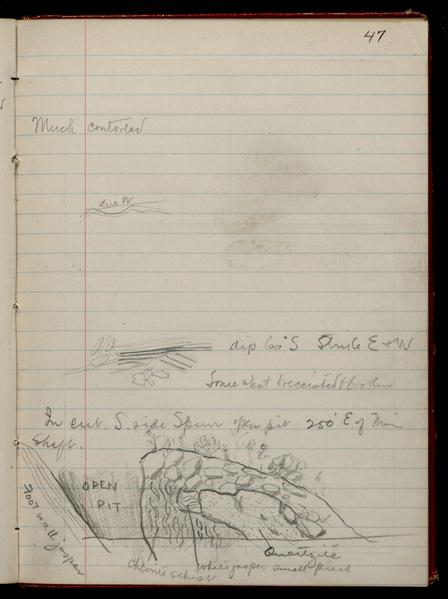 47
Much contorted
due W
dip 60° S Strike E & W
Some what brecciated & broken
In cut. S. side Spurr open pit 250' E. of Main
Shaft.
OPEN
PIT
Foot wall jasper
Quartzite
Chlorite schist
white jasper small piece